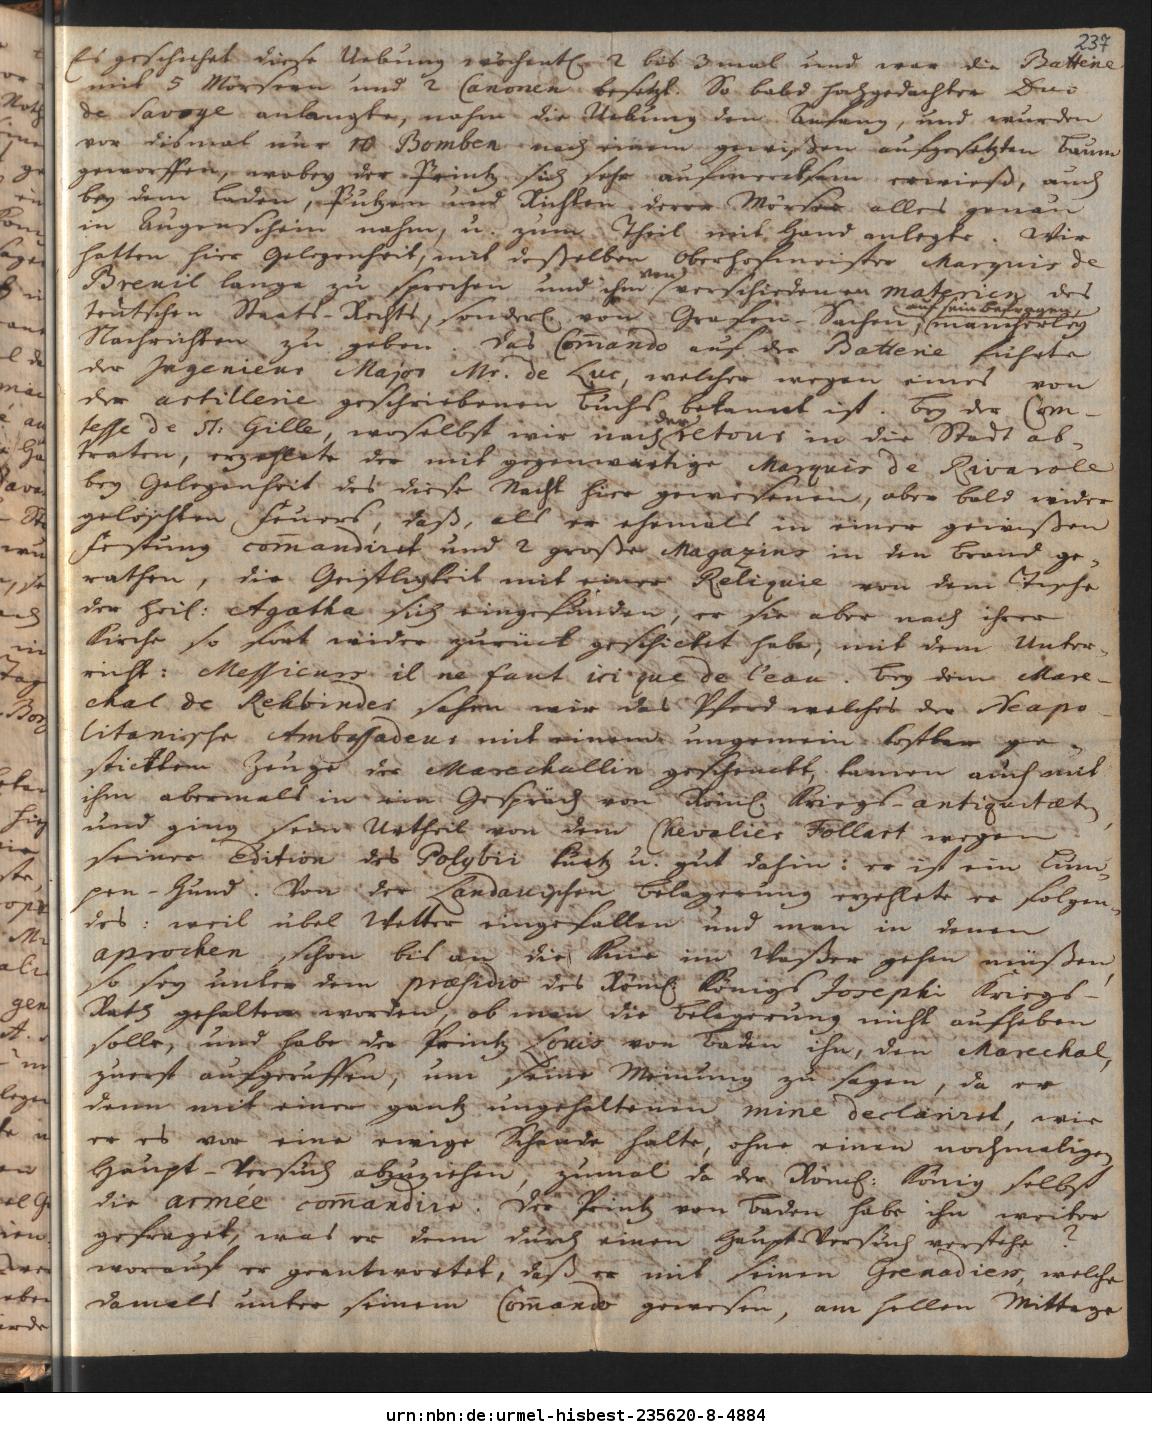 237
Es geschiehet diese Uebung wöchentl. 2 bis 3 mal und war die Batterie
mit 5 Mörsern und 2 Canonen besetzt. So bald hochgedachter Duc
de Savoye anlangte, nahm die Uebung den Anfang, und wurden
vor dismal nur 10 Bomben nach einem gewißen aufgesetzten Baum
geworffen, wobey der Printz sich sehr aufmercksam erwieß, auch
bey dem Laden, Putzen und Richten derer Mörser alles genau
in Augenschein nahm, u. zum Theil mit Hand anlegte. Wir
hatten hier Gelegenheit, mit deßelben Oberhofmeister Marquis de
Breuil lange zu sprechen und ihm von verschiedenen materien des
teutschen Staats-Rechts, sonderl. von Grafen-Sachen, auf sein befragen, mancherley
Nachrichten zu geben. Das Com̄ando auf der Batterie führte
der Ingenieur Major Mr. de Luc, welcher wegen eines von
der artillerie geschriebenen Buchs bekannt ist. Bey der Com-
tesse de St: Gille, woselbst wir nach der retour in die Stadt ab-
traten, erzehlete der mit gegenwärtige Marquis de Rivarole
bey Gelegenheit des diese Nacht hier gewesenen, aber bald wider
gelöschten Feuers, daß, als er ehemals in einer gewißen
Festung com̄andiret und 2 große Magazins in den Brand ge-
rathen, die Geistligkeit mit einer Reliquie von dem Tische
der heil: Agatha sich eingefunden, er sie aber nach ihrer
Kirche so fort wider zurück geschicket habe, mit dem Unter-
richt: Messieurs il ne faut ici que de l'eau. Bey dem Mare-
chal de Rehbinder sahen wir das Pferd welches der Neapo-
litanische Ambassadeur mit einem ungemein kostbar ge-
stickten Zeuge der Marechallin geschenckt, kamen auch mit
ihm abermals in ein Gespräch von Röml. Kriegs-antiquitæten,
und ging sein Urtheil von dem Chevalier Follart wegen
seiner Edition des Polybii kurtz u. gut dahin: er ist ein Lum-
pen-Hund. Von der Landauischen Belagerung erzehlete er folgen-
des: weil übel Wetter eingefallen und man in denen
aprochen schon bis an die Knie im Waßer gehen müßen,
so sey unter dem præsidio des Röml. Königs Josephi Kriegs-
Rath gehalten worden, ob man die Belagerung nicht aufheben
solle, und habe der Printz Louis von Baden ihn, den Marechal,
zuerst aufgeruffen, um seine Meinung zu sagen, da er
denn mit einer gantz ungehaltenen mine declariret, wie
er es vor eine ewige Schande halte, ohne einen nochmaligen
Haupt-Versuch abzuziehen, zumal da der Röml: König selbst
die armée com̄andire. Der Printz von Baden habe ihn weiter
gefraget, was er denn durch einen Haupt-Versuch verstehe?
worauf er geantwortet, daß er mit seinen Grenadiers, welche
damals unter seinem Com̄ando gewesen, am hellen Mittage
urn:nbn:de:urmel-hisbest-235620-8-4884